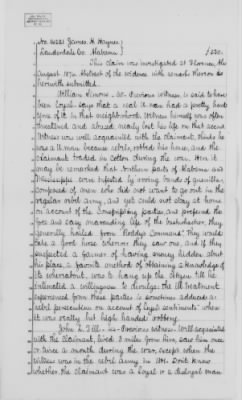 No. 4221 James H. Haynes
Lauderdale Co. Alabama } 
This claim was investigated at Florence, Ala
August 1874. Abstract of the evidence with remarks thereon is
herewith submitted.
William Simons. Witness is said to have
been loyal. says that a real U. man had a pretty hard
time of it in that neighborhood. Witness himself was often
threatened and abused nearly lost his life on that account
Witness was well acquainted with the claimant, thinks he
was a U. man because rebels, robbed his house, and the
claimant traded in cotton during the war. Here it
may be remarked that Northern parts of Alabama and
Mississippi were infested by roving bands of guerillas,
composed of men who did not want to go out in the
regular rebel army, and yet could not stay at home
on account of the Conscripting parties, and preferred the
free and easy marauding life of the bushwhacker, they
generally hailed from "Roddy's Command" they would
take a good horse wherever they saw one, and if they
suspected a farmer of having money hidden about
his place, a favorite method of obtaining a knowledge of
its whereabouts, was to hang up the Citizen till he
intimated a willingness to divulge. The ill treatment
experienced from these parties is sometimes adduced as
rebel persecution on account of loyal sentiments when
it was really but high handed robbery.
John L. Till. Witness. Well acquainted
with the claimant, lived 3 miles from him, saw him once
or twice a month during the war, except when the
witness was in the rebel army in 1861. Don't know
whether the claimant was a loyal or a disloyal man